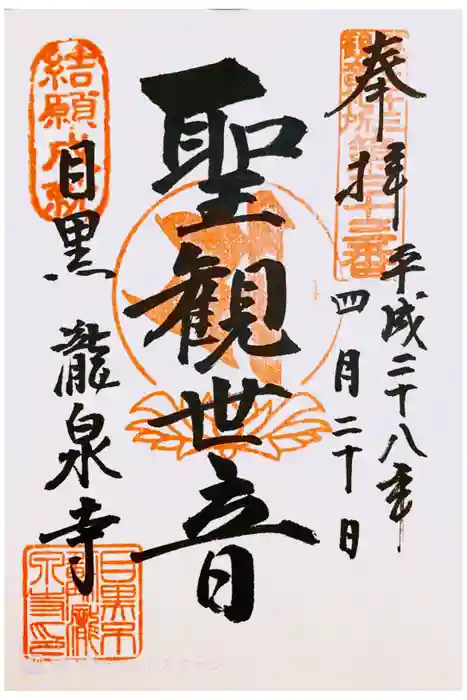 奉拝
平成二十八年
四月二十日
聖観世音
結願
目黒
瀧泉寺